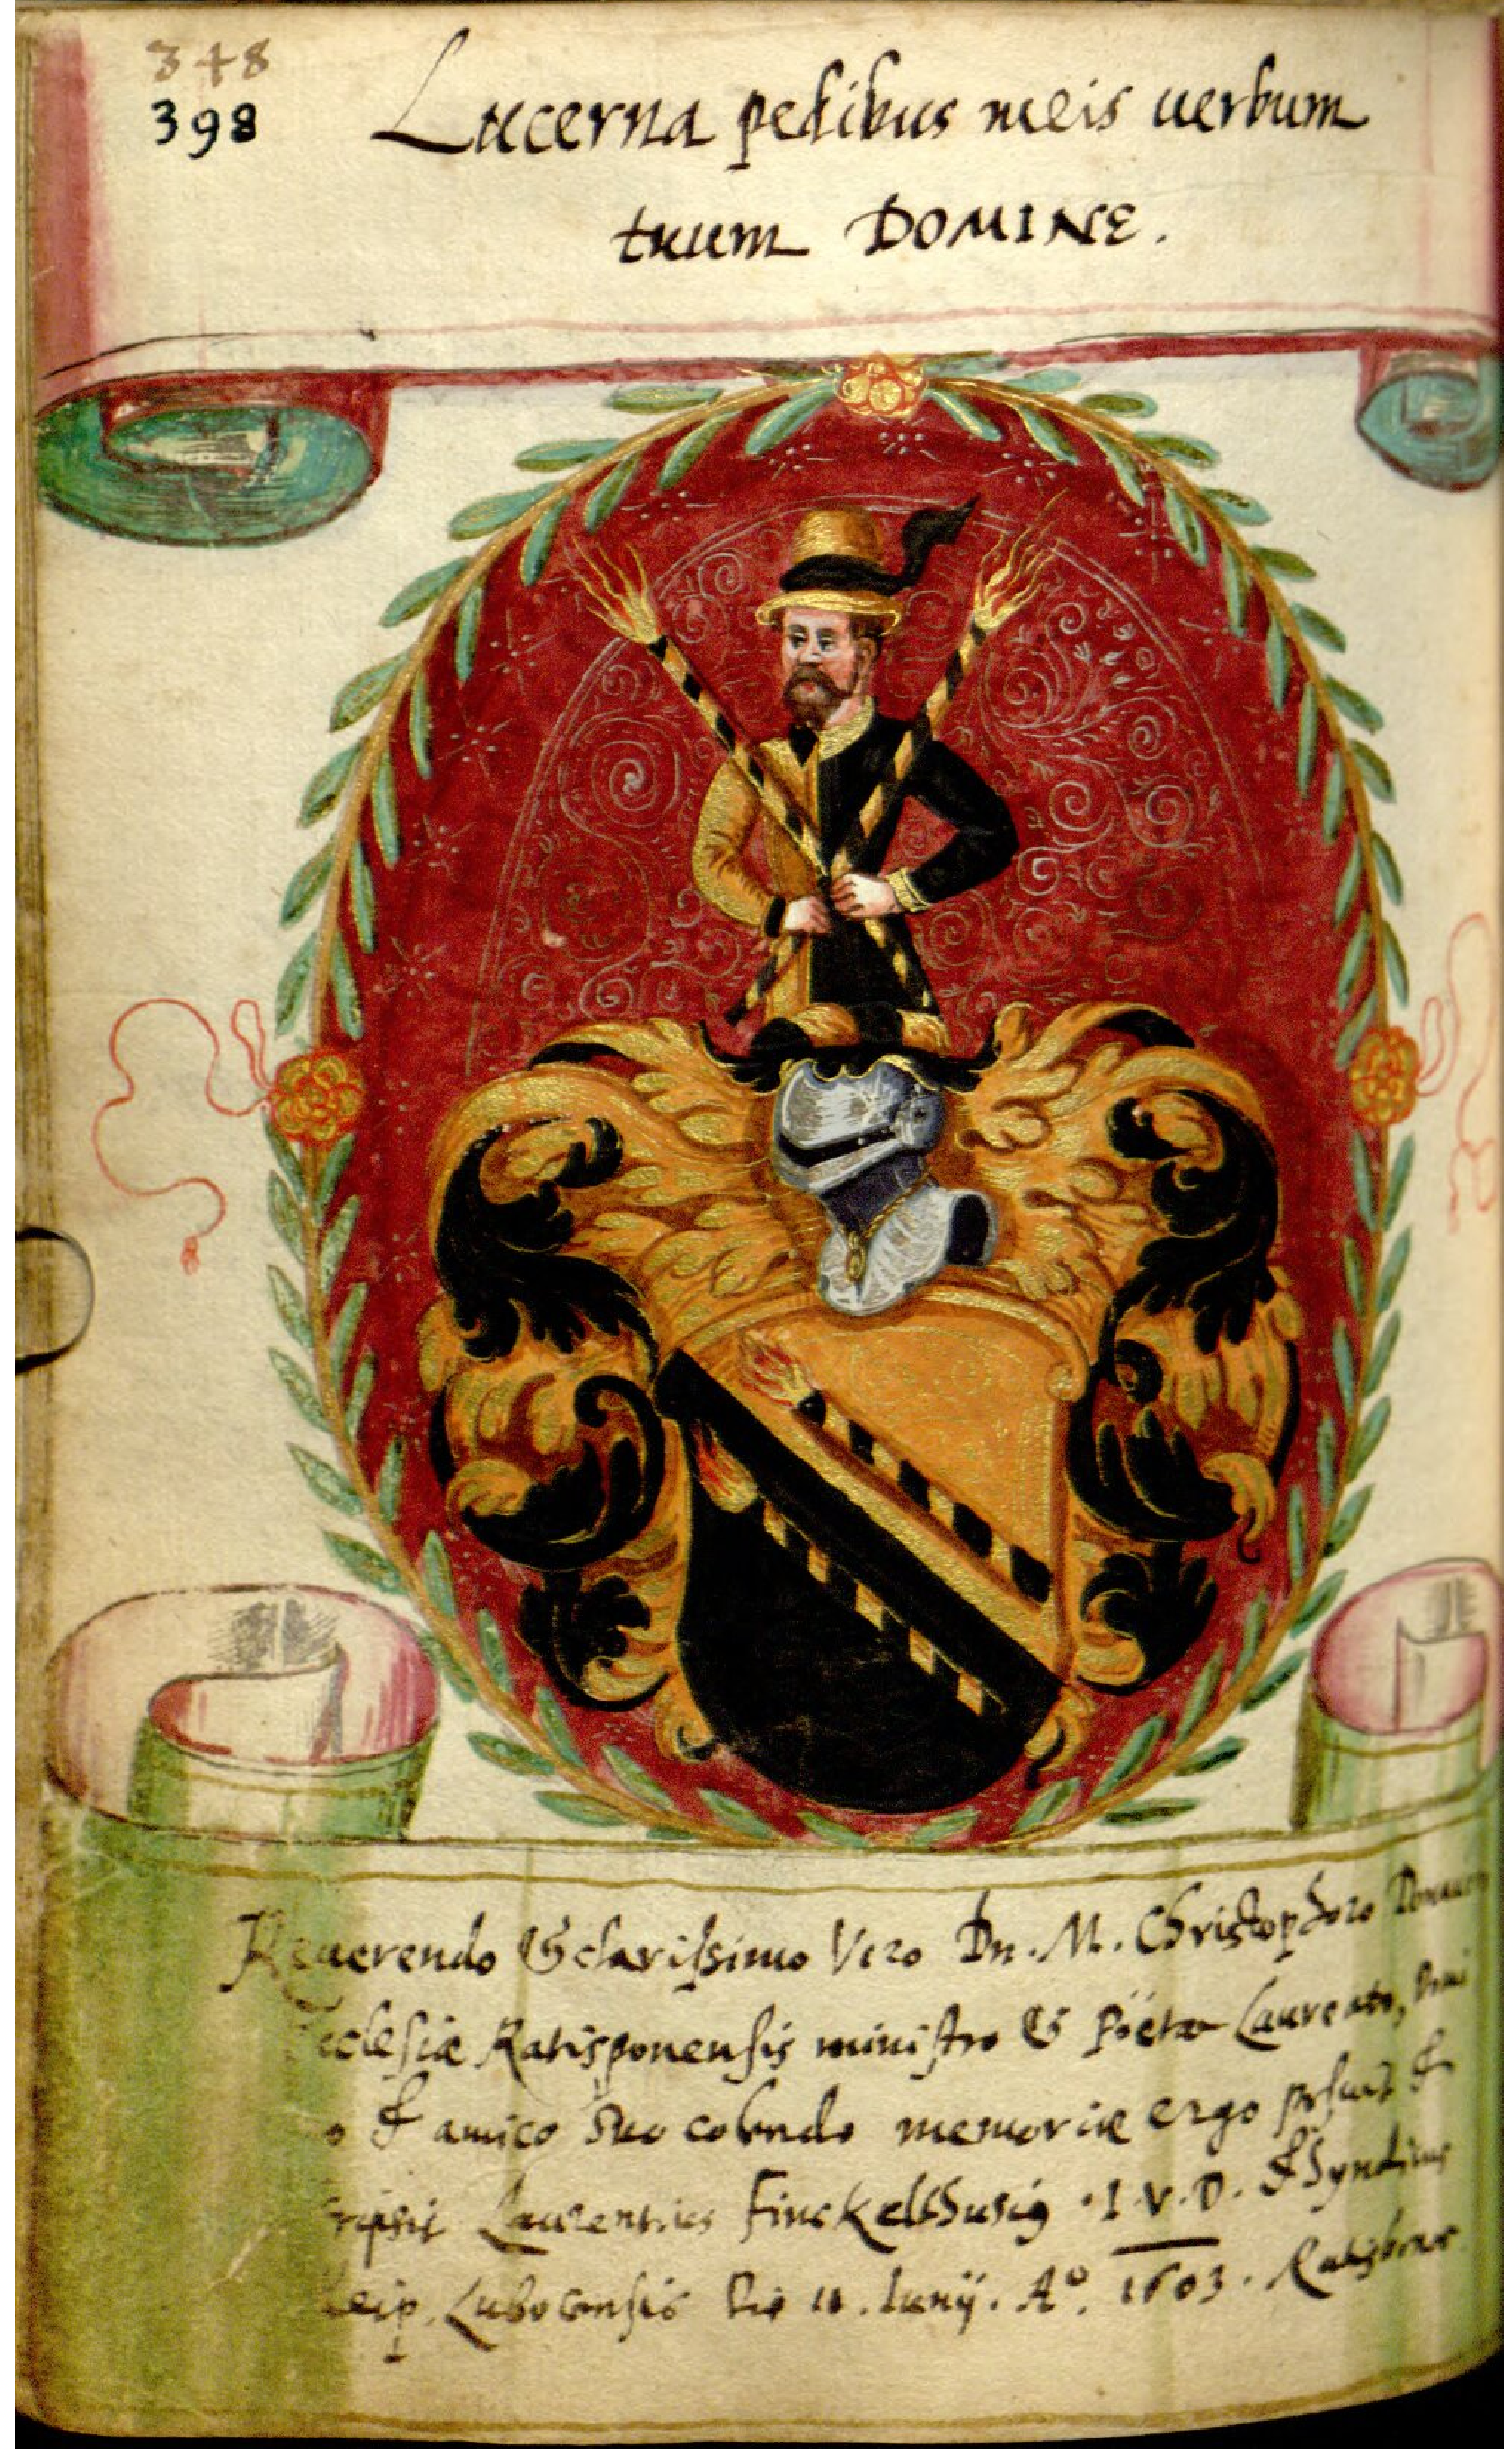 348
398
Lucerna pedibus meis uerbum
tuum DOMINE.
Reuerendo & clarissimo Viro Dn. M. Christophoro
cclesiæ Ratisponensis ministro & Poëtæ Laureato,
o & amico suo colendo memoriæ ergo &
ripsit Laurentius Finckelthusig I. V. D. & Syndicus
eip. Lubecensis Die 11. Iunij. Aº. 1603. Ratisbonæ